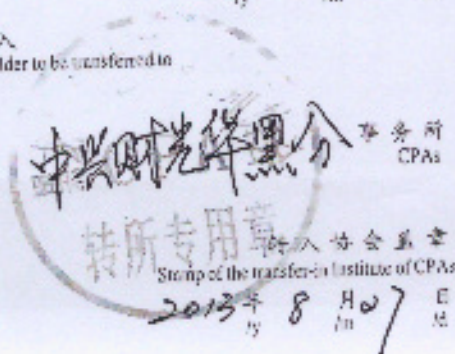 lder to be transferred to
中兴财光华黑分 事务所
CPAs
转所专用章
转入协会盖章
Stamp of the transfer-in Institute of CPAs
2013年 8月07日
/y /m /d